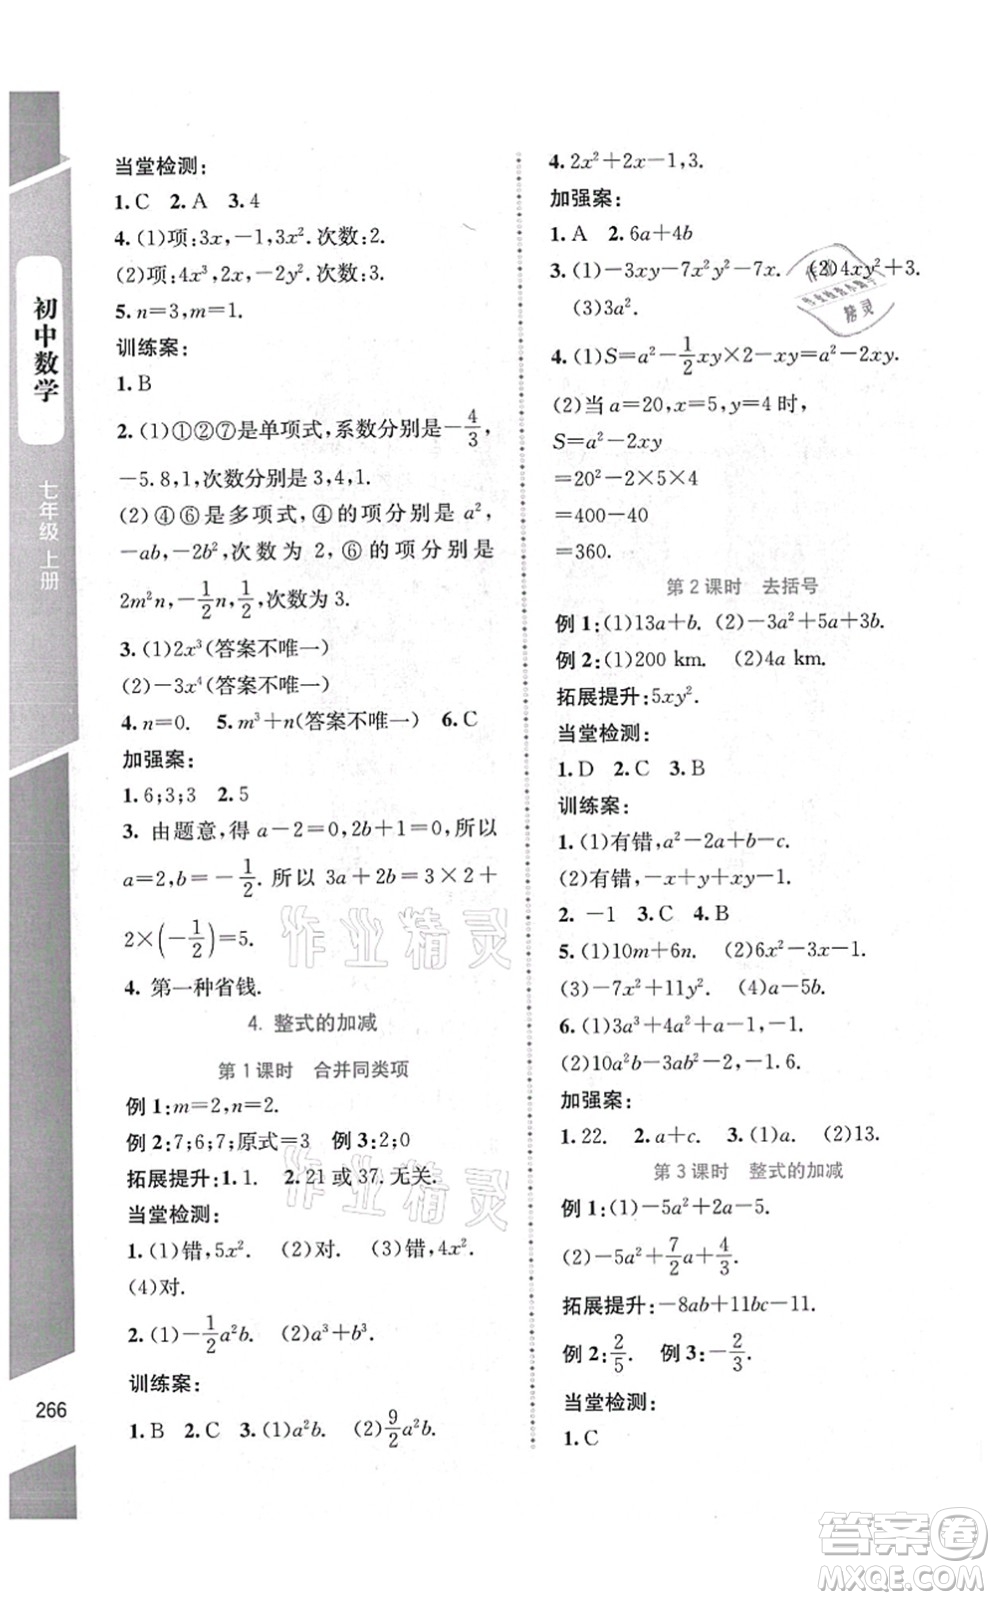 初中数学
七年级 上册
266
当堂检测:
1. C 2. A 3. 4
4. (1)项:3x,-1,3x². 次数:2.
(2)项:4x³,2x,-2y². 次数:3.
5. n=3,m=1.
训练案:
1. B
2. (1)①②⑦是单项式,系数分别是-4/3,
-5.8,1,次数分别是3,4,1.
(2)④⑥是多项式,④的项分别是 a²,
-ab,-2b²,次数为 2,⑥的项分别是
2m²n,-1/2n,1/2,次数为 3.
3. (1)2x³(答案不唯一)
(2)-3x⁴(答案不唯一)
4. n=0. 5. m³+n(答案不唯一) 6. C
加强案:
1. 6;3;3 2. 5
3. 由题意,得 a-2=0,2b+1=0,所以
a=2,b=-1/2. 所以 3a+2b=3×2+
2×(-1/2)=5.
4. 第一种省钱.
4. 整式的加减
第 1 课时 合并同类项
例 1:m=2,n=2.
例 2:7;6;7;原式=3 例 3:2;0
拓展提升:1. 1. 2. 21 或 37. 无关.
当堂检测:
1. (1)错,5x². (2)对. (3)错,4x².
(4)对.
2. (1)-1/2a²b. (2)a³+b³.
训练案:
1. B 2. C 3. (1)a²b. (2)9/2a²b.
4. 2x²+2x-1,3.
加强案:
1. A 2. 6a+4b
3. (1)-3xy-7x²y²-7x. (2)4xy²+3.
(3)3a².
4. (1)S=a²-1/2xy×2-xy=a²-2xy.
(2)当 a=20,x=5,y=4 时,
S=a²-2xy
=20²-2×5×4
=400-40
=360.
第 2 课时 去括号
例 1:(1)13a+b. (2)-3a²+5a+3b.
例 2:(1)200 km. (2)4a km.
拓展提升:5xy².
当堂检测:
1. D 2. C 3. B
训练案:
1. (1)有错,a²-2a+b-c.
(2)有错,-x+y+xy-1.
2. -1 3. C 4. B
5. (1)10m+6n. (2)-3x-10.
(3)-7x²+11x. (4)a-5b.
6. (1)3a³+4a²-2a-6.
(2)10a²b-3ab²+2.
加强案:
1. 22. 2. a+c. 3. (1)a. (2)13.
第 3 课时 整式的加减
例 1:(1)-5a²+2a-5.
(2)-5a²+7/2a+4/3.
拓展提升:-8ab+11bc-11.
例 2:2/5. 例 3:-2/3.
当堂检测:
1. C
作业精灵
作业精灵
答案圈
MXQE.COM